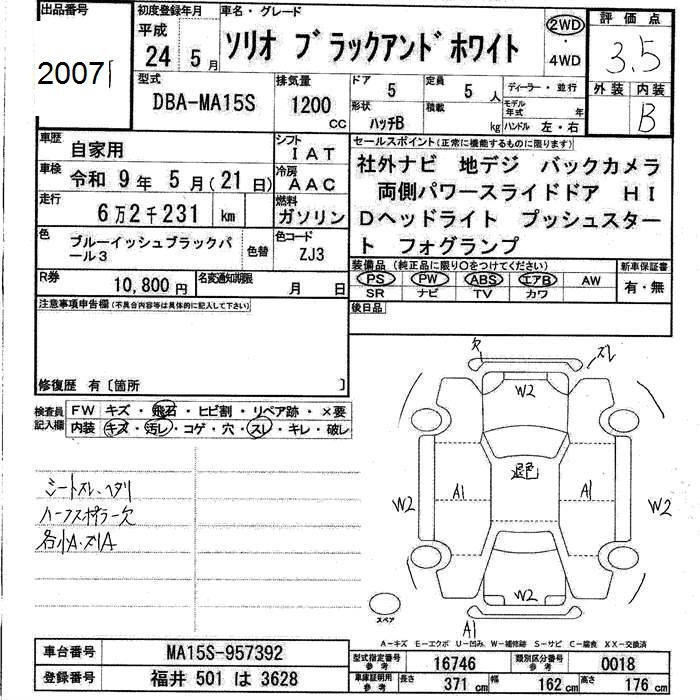 出品番号 初度登録年月 車名・グレード 評価点
平成 24 5月 ソリオ ブラックアンドホワイト 2WD・4WD 3.5
20071
型式 排気量 ドア 定員 ディーラー・並行 外装 内装
DBA-MA15S 1200 CC 5 5人 モデル年式 年 B
形状 積載
ハッチB kg ハンドル 左・右
車歴 自家用 シフト IAT セールスポイント(正常に機能するものに限ります)
車検 令和 9年 5月(21日) 冷房 AAC 社外ナビ 地デジ バックカメラ
走行 6万2千231 km 燃料 ガソリン 両側パワースライドドア HI
Dヘッドライト プッシュスター
ト フォグランプ
色 ブルーイッシュブラックパ 色替 色コード
ール3 ZJ3
装備品(純正品に限り○をつけてください) 新車保証書
R券 10,800円 名変通知期限 月 日 PS PW ABS エアB AW 有・無
SR ナビ TV カワ
注意事項申告欄(不具合内容等は具体的に記入して下さい) 後日品
修復歴 有〔箇所 〕
検査員記入欄 FW キズ・飛石・ヒビ割・リペア跡・×要
内装 キズ・汚レ・コゲ・穴・スレ・キレ・破レ
シートスレ、ヘタリ
ハーフスポイラー欠
各小A・スリA
欠 スレ
W2
退色
A1 A1
W2 W2
W2
スペア
A1
A-キズ E-エクボ U-凹み W-補修跡 S-サビ C-腐食 XX-交換済
車台番号 MA15S-957392 型式指定番号 参考 16746 類別区分番号 参考 0018
登録番号 福井 501 は 3628 車庫証明用 参考 長さ 371 cm 幅 162 cm 高さ 176 cm